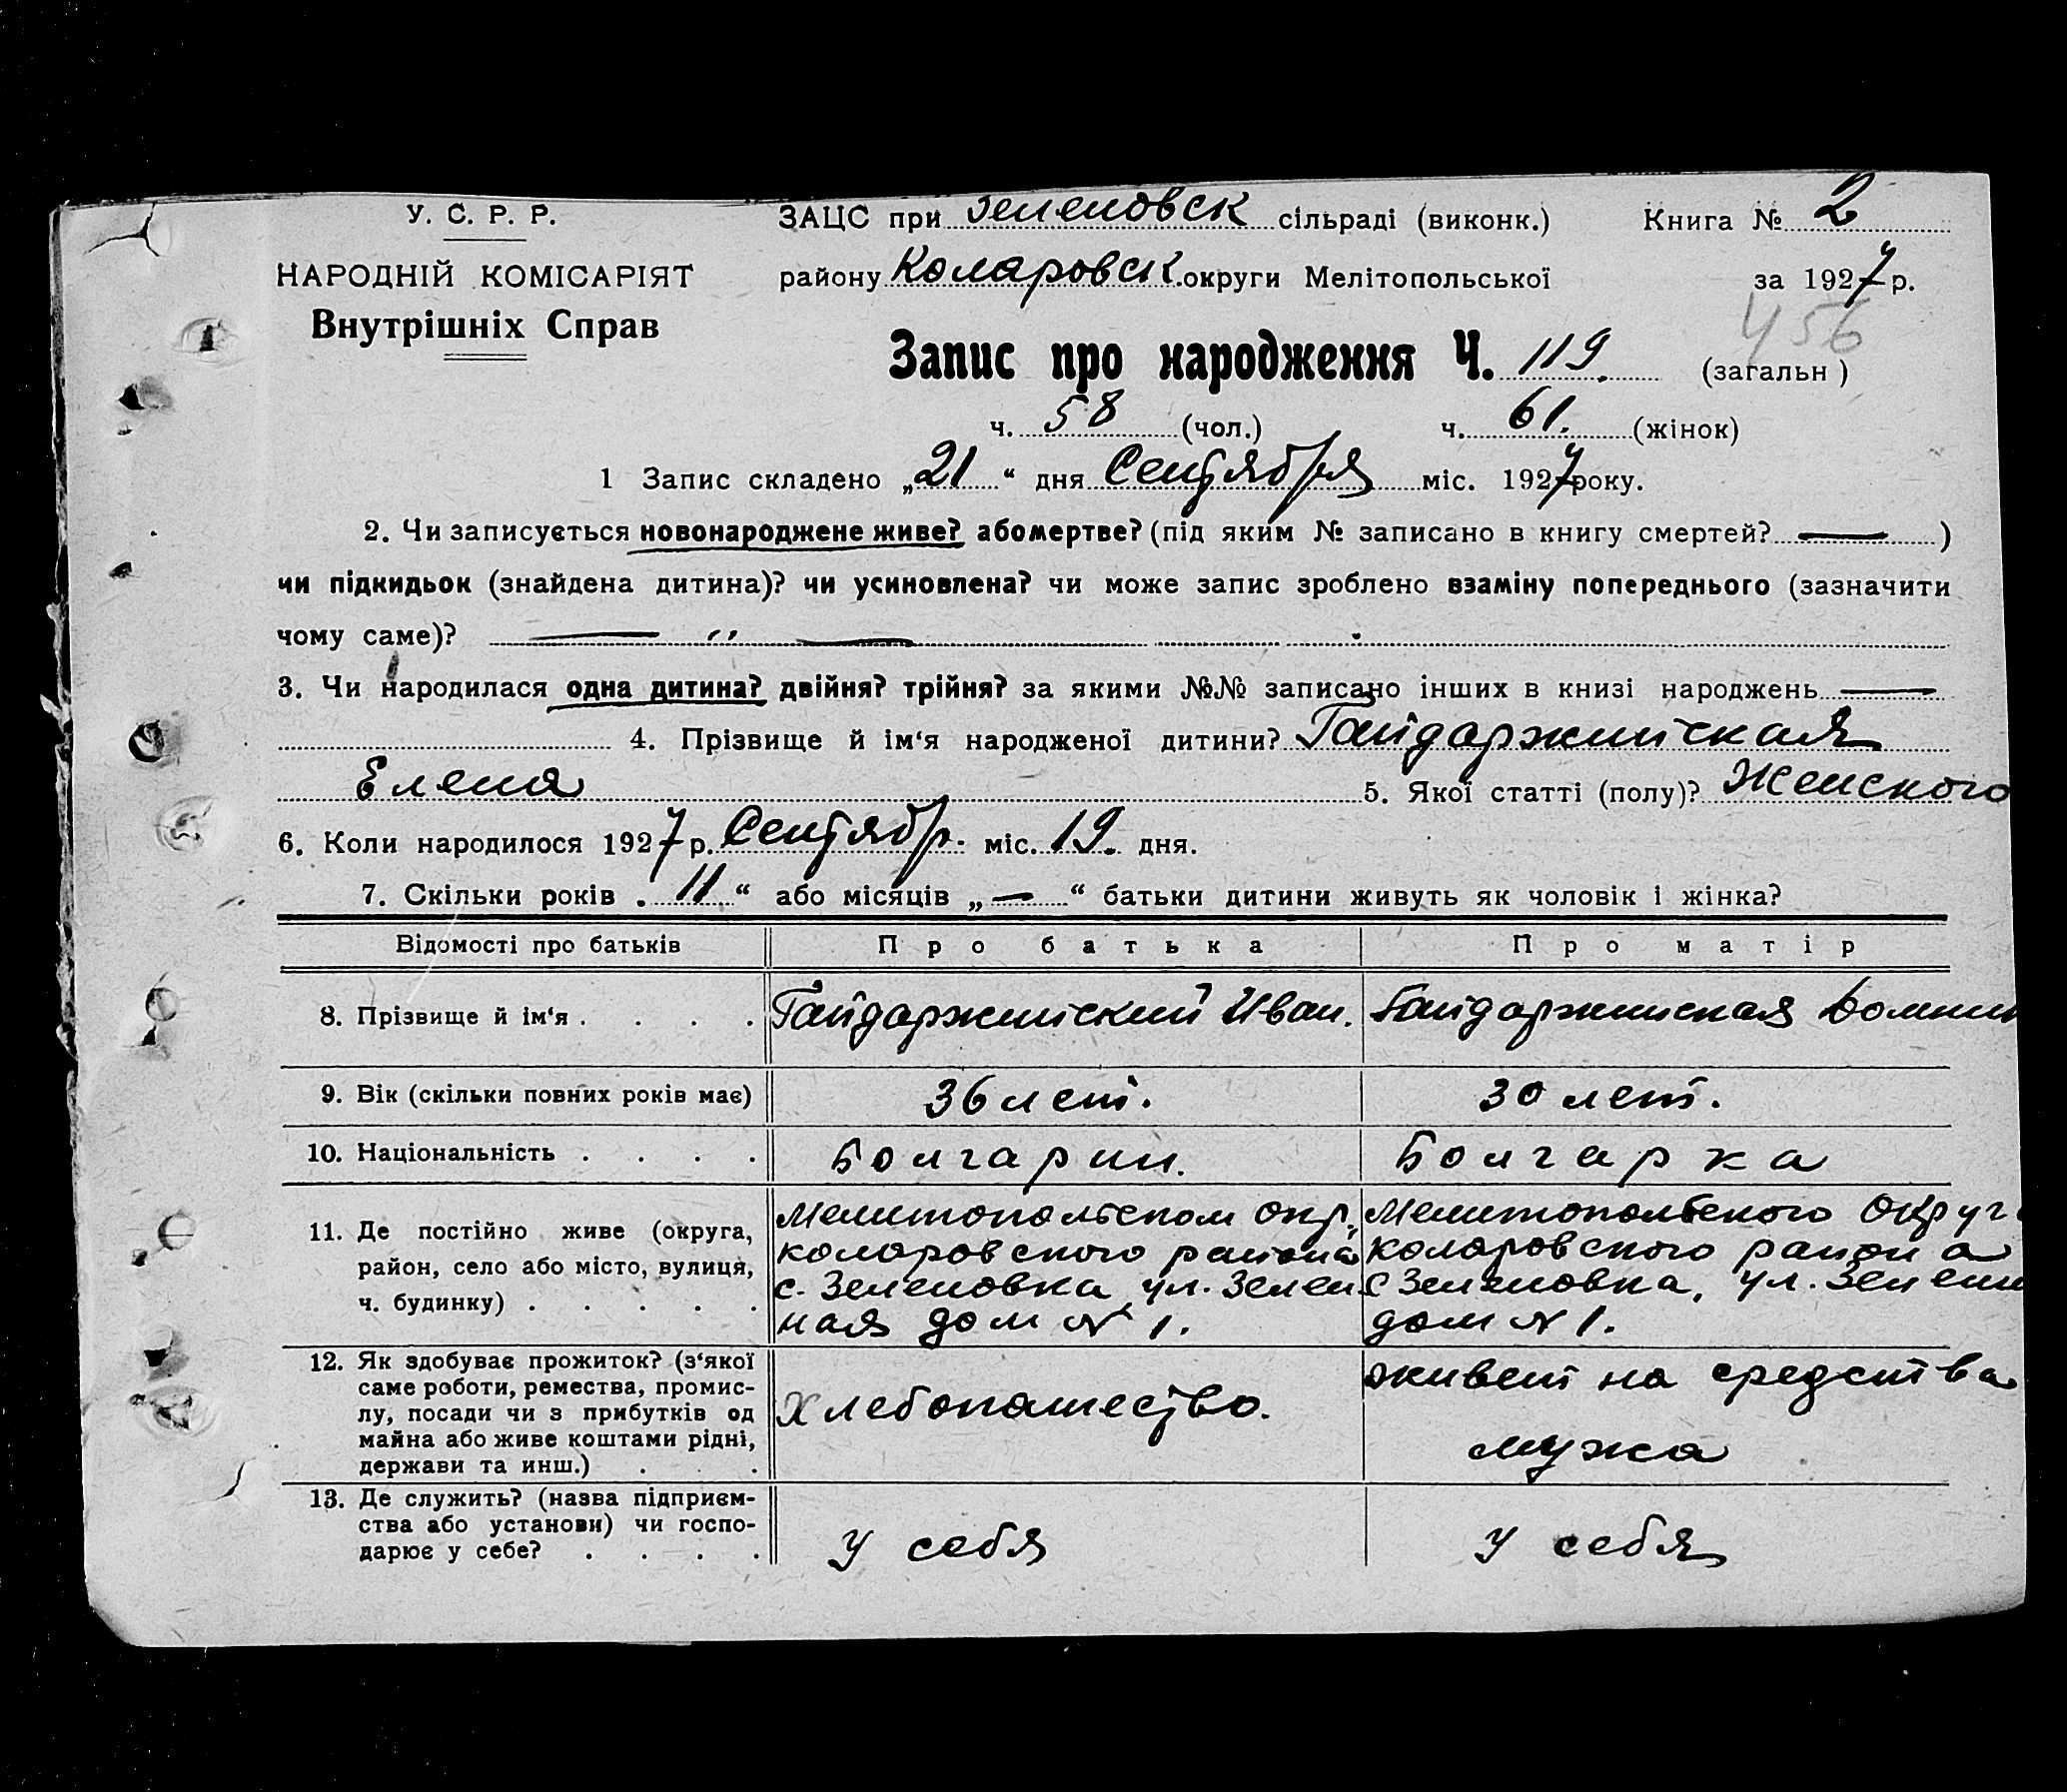 У. С. Р. Р.
НАРОДНІЙ КОМІСАРІЯТ
Внутрішніх Справ
ЗАЦС при Зеленовск сільраді (виконк.) Книга № 2
району Коларовск. округи Мелітопольської за 1927 р.
456
Запис про народження Ч. 119. (загальн)
ч. 58 (чол.) ч. 61. (жінок)
1 Запис складено „21“ дня Сентября міс. 1927 року.
2. Чи записується новонароджене живе? або мертве? (під яким № записано в книгу смертей? — )
чи підкидьок (знайдена дитина)? чи усиновлена? чи може запис зроблено взаміну попереднього (зазначити
чому саме)? — „ —
3. Чи народилася одна дитина? двійня? трійня? за якими №№ записано інших в книзі народжень —
4. Прізвище й ім‘я народженої дитини? Гайдаржийская
Елена 5. Якої статті (полу)? Женского
6. Коли народилося 1927 р. Сентябр. міс. 19. дня.
7. Скільки років „11“ або місяців „—“ батьки дитини живуть як чоловік і жінка?
Відомості про батьків Про батька Про матір
8. Прізвище й ім‘я . . . . Гайдаржийский Иван. Гайдаржийская
9. Вік (скільки повних років має) 36 лет. 30 лет.
10. Національність . . . . Болгарин. Болгарка
11. Де постійно живе (округа,
район, село або місто, вулиця,
ч. будинку) . . . . .
Мелитопольском окр.
коларовского района
с. Зеленовка, ул. Зелен
ная дом № 1.
Мелитопольского Округ
коларовского района
с Зеленовка, ул. Зеленн
дом № 1.
12. Як здобуває прожиток? (з‘якої
саме роботи, ремества, промис-
лу, посади чи з прибутків од
майна або живе коштами рідні,
держави та инш.) . . .
Хлебопашество.
живет на средства
мужа
13. Де служить? (назва підприєм-
ства або установи) чи госпо-
дарює у себе? . . . .
У себя
У себя